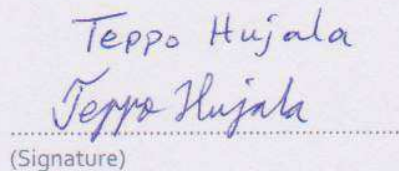 Teppo Hujala
Teppo Hujala
(Signature)